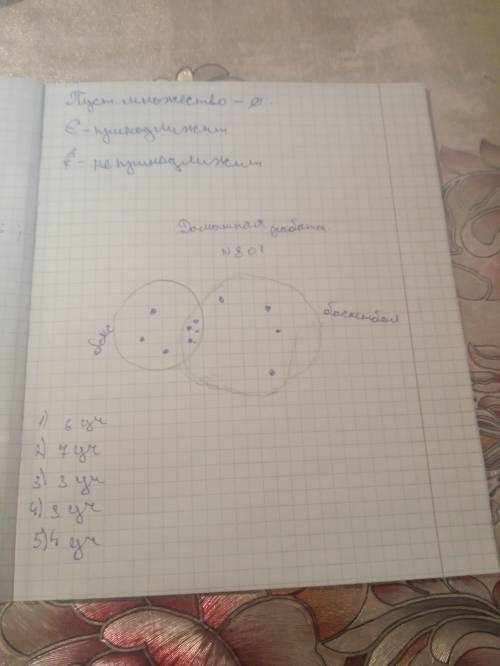 Пуст множество - ∅
∈ - принадлежит
∉ - не принадлежит
Домашная работа
N 801
бокс
баскетбол
1) 6 уч
2) 7 уч
3) 3 уч
4) 3 уч
5) 4 уч